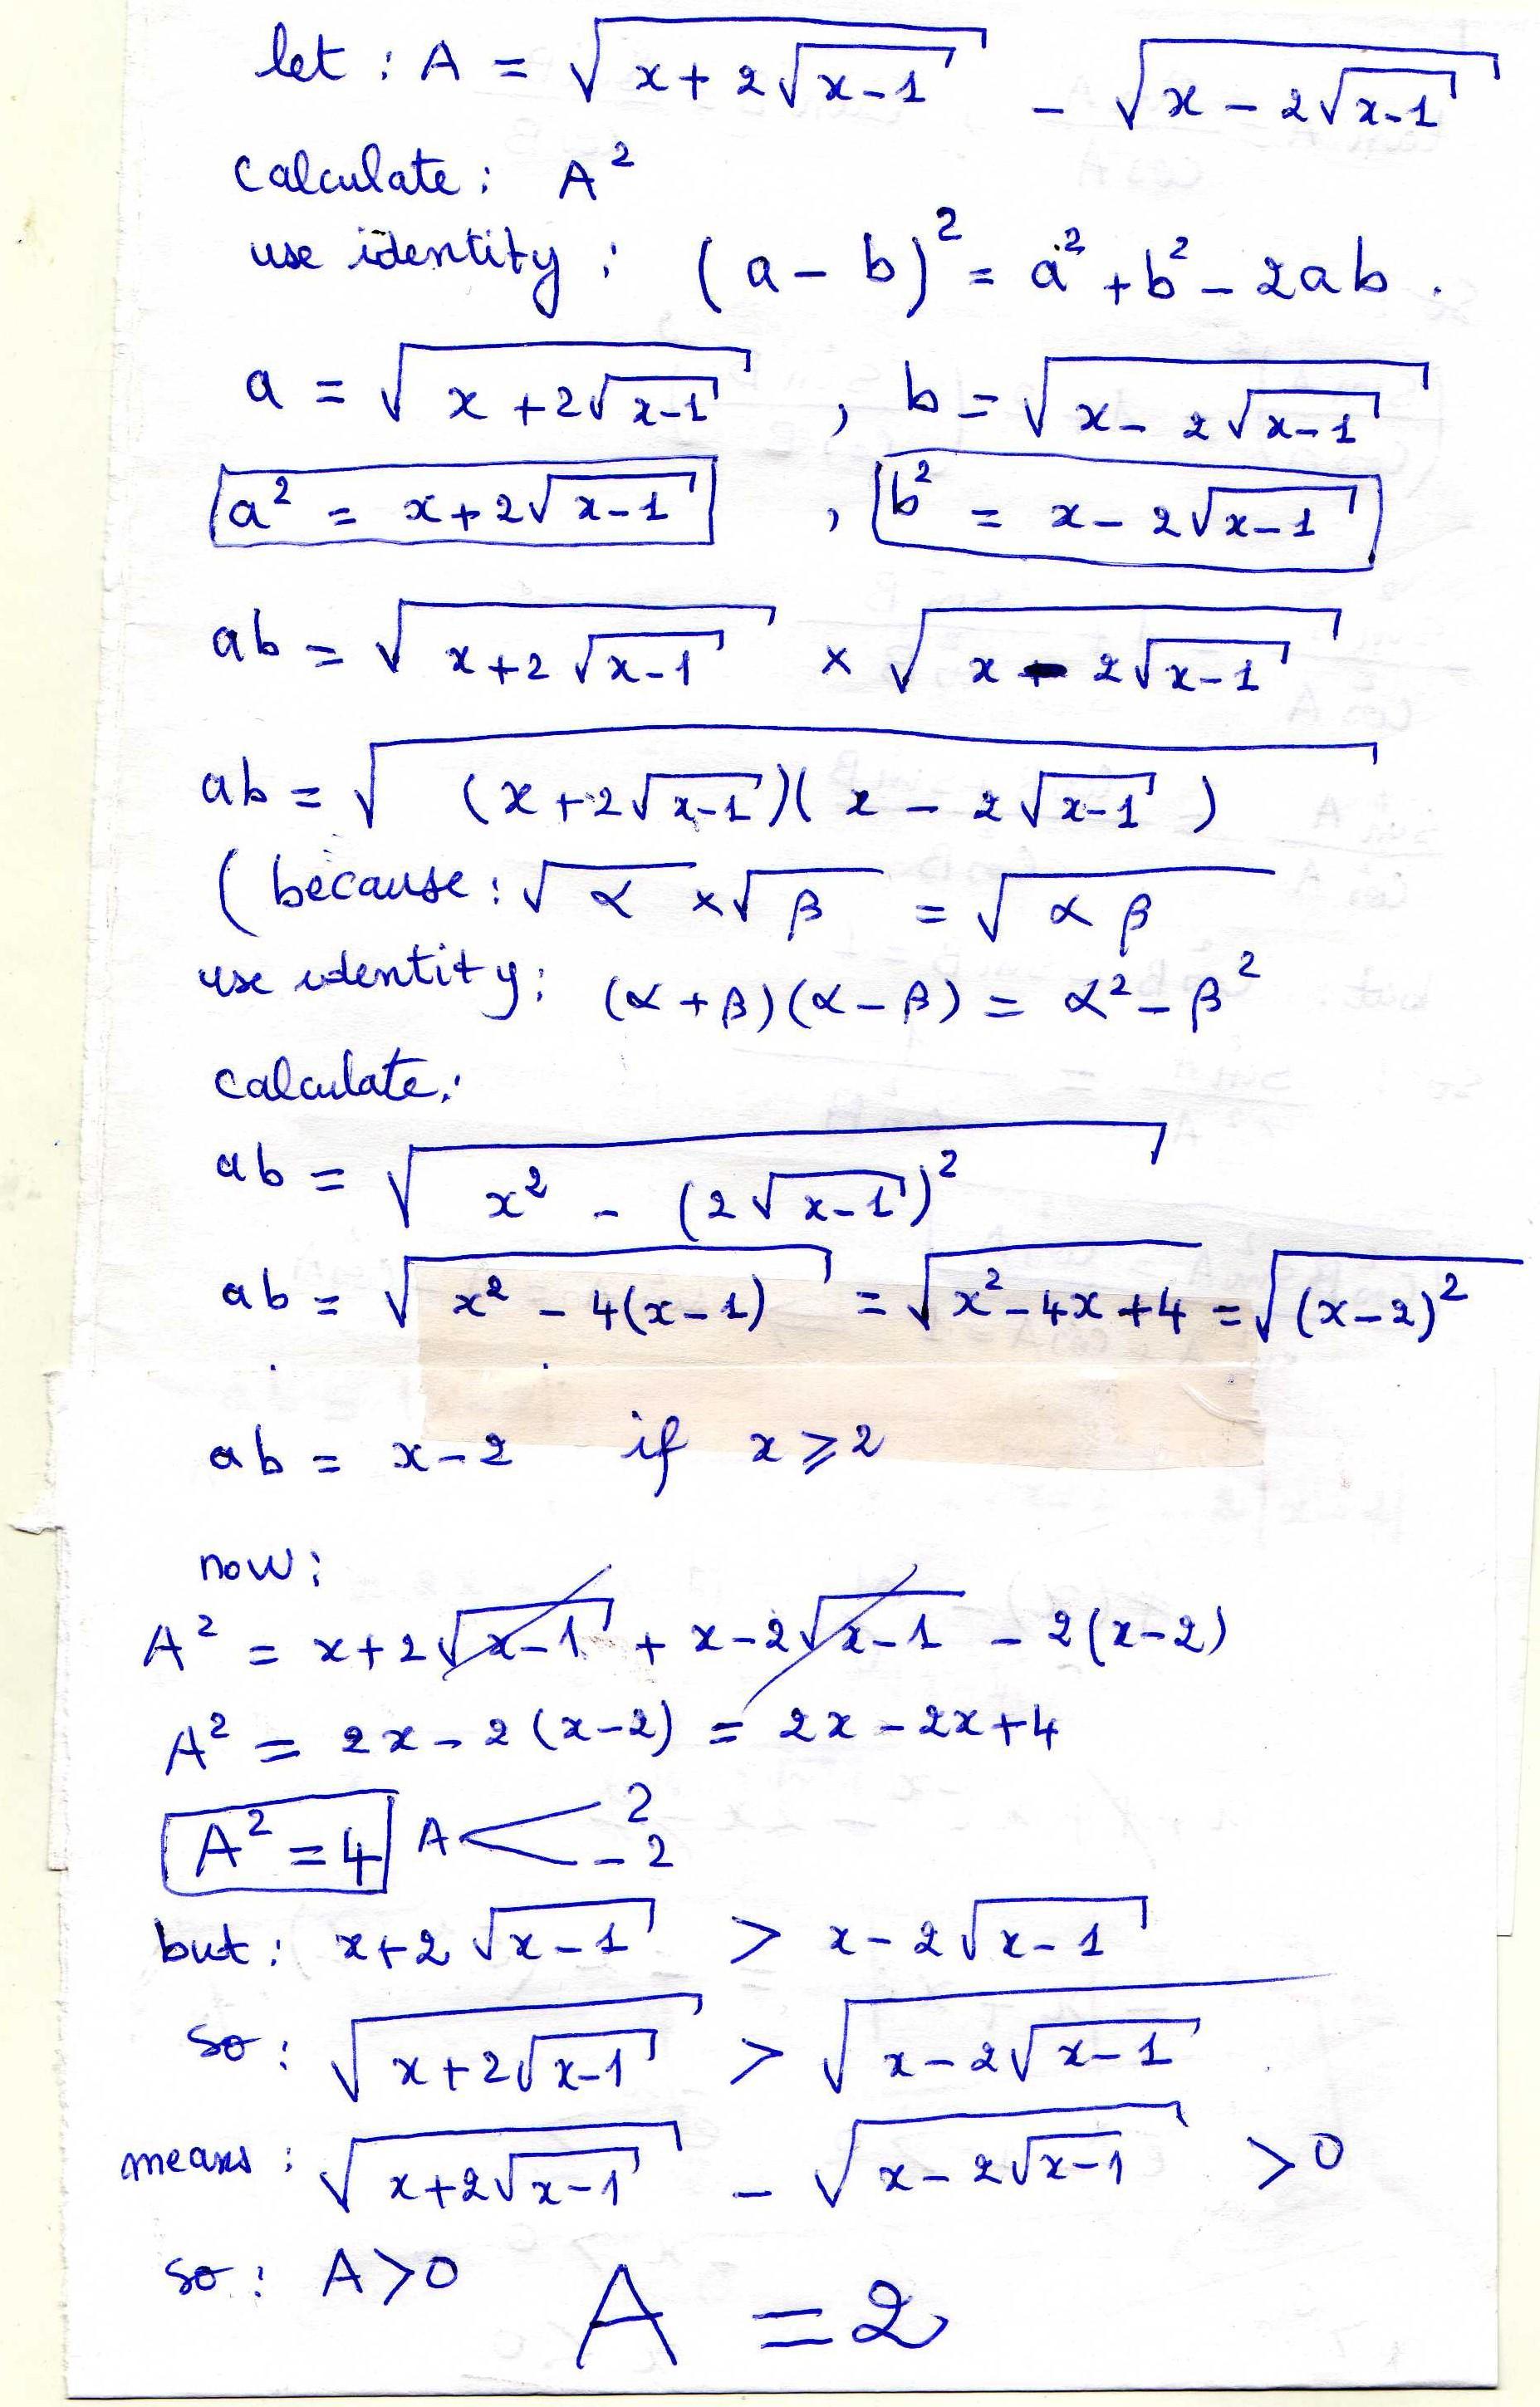 let : A = √(x+2√(x-1)) - √(x-2√(x-1))
calculate: A²
use identity : (a-b)² = a²+b²-2ab.
a = √(x+2√(x-1)) , b = √(x-2√(x-1))
a² = x+2√(x-1) , b² = x-2√(x-1)
ab = √(x+2√(x-1)) × √(x-2√(x-1))
ab = √((x+2√(x-1))(x-2√(x-1)))
(because: √α × √β = √αβ
use identity: (α+β)(α-β) = α²-β²
calculate:
ab = √(x² - (2√(x-1))²)
ab = √(x²-4(x-1)) = √(x²-4x+4) = √(x-2)²
ab = x-2 if x⩾2
now:
A² = x+2√(x-1) + x-2√(x-1) - 2(x-2)
A² = 2x-2(x-2) = 2x-2x+4
A² = 4 A < 2
-2
but: x+2√(x-1) > x-2√(x-1)
so: √(x+2√(x-1)) > √(x-2√(x-1))
means: √(x+2√(x-1)) - √(x-2√(x-1)) >0
so: A>0 A = 2